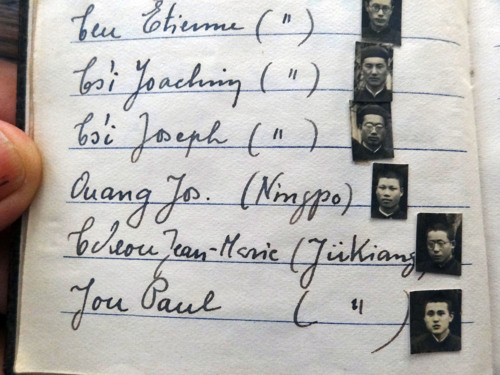 Ceu Etienne ( " )
Es'i Joachim ( " )
Es'i Joseph ( " )
Ouang Jos. (Ningpo)
Jean-Marie (JüKiang)
Jou Paul ( " )